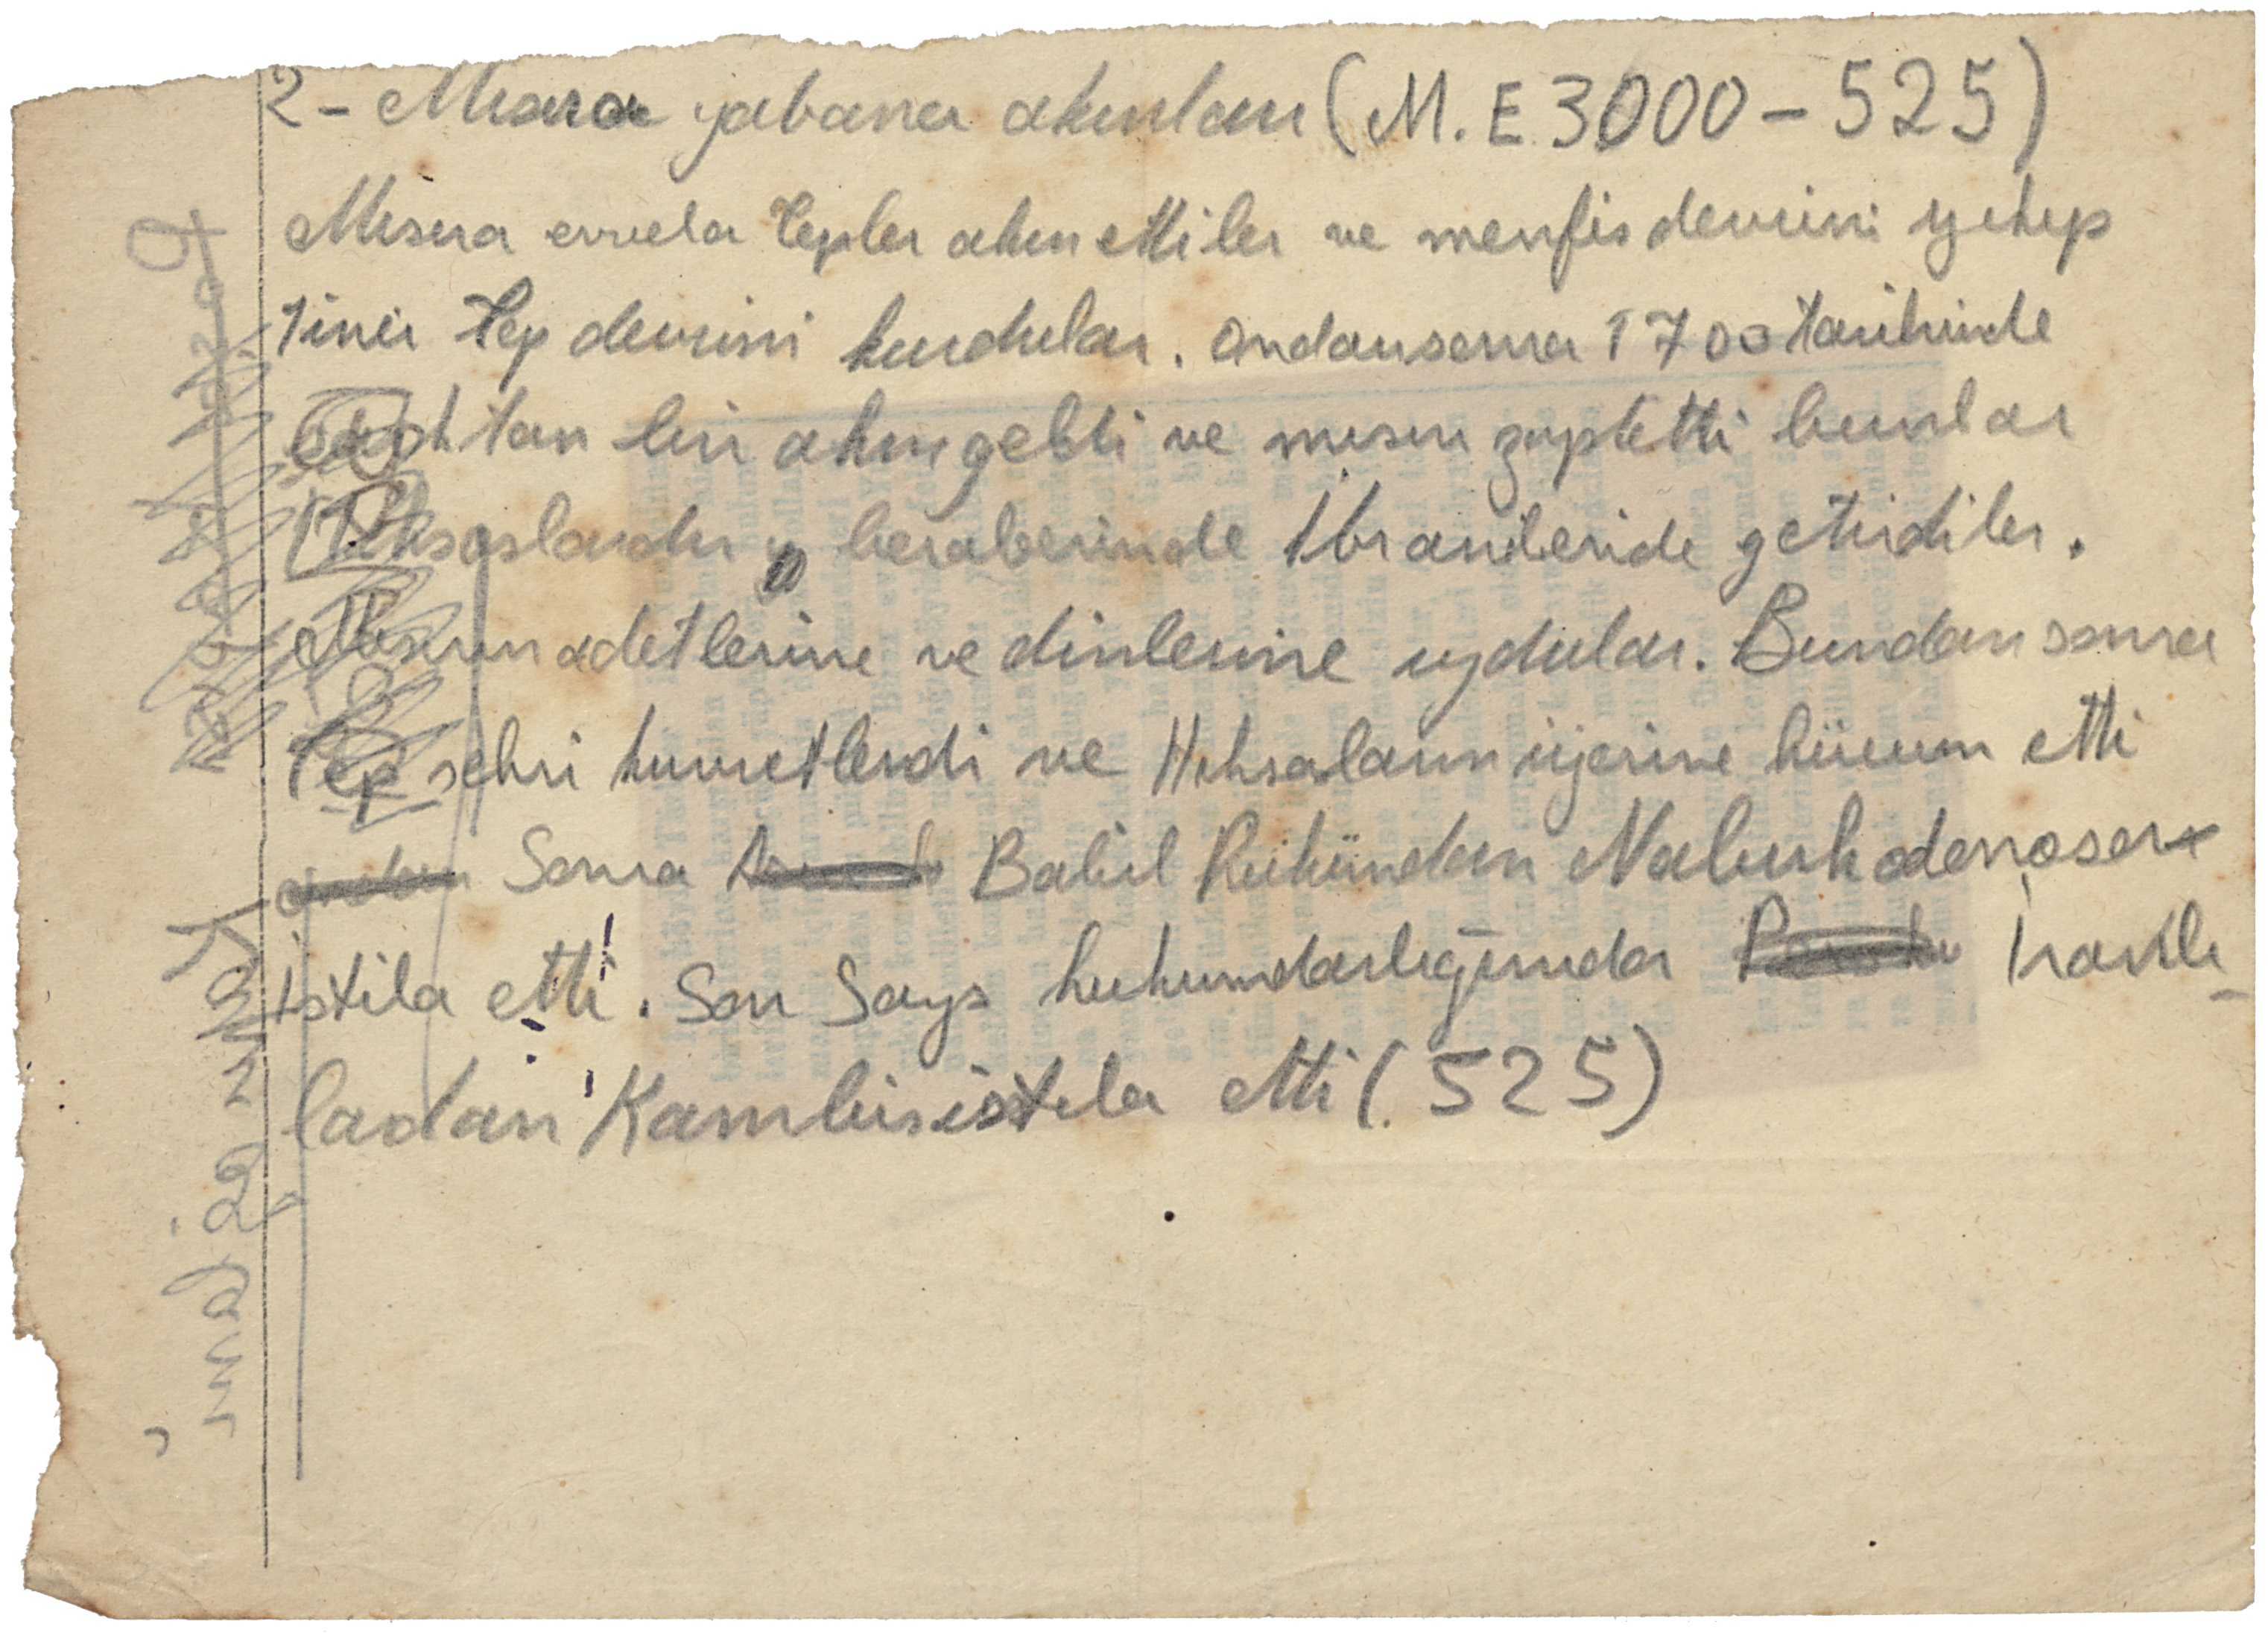 2 - Mısıra yabancı akınları (M.E 3000 - 525)
Mısıra evvela tepler akın ettiler ve menfis devrini yıkıp
1inci tep devrini kurdular. Ondansonra 1700 tarihinde
tan bir akın geldi ve mısırı zaptetti bunlar
Hiksoslardır beraberinde İbranileride getirdiler.
Mısırın adetlerine ve dinlerine uydular. Bundan sonra
Tep şehri kuvvetlendi ve Hiksosların üzerine hücum etti
Sonra Babil Hükündarı Nabukodonosor
istila etti. Son Says hukumdarlığında İranlı_
lardan Kambis istila etti (525)